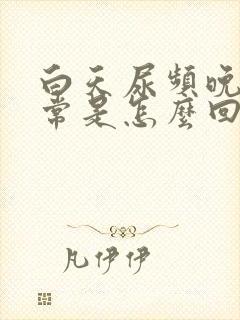 白天尿頻晚
常是怎麼回
凡伊伊